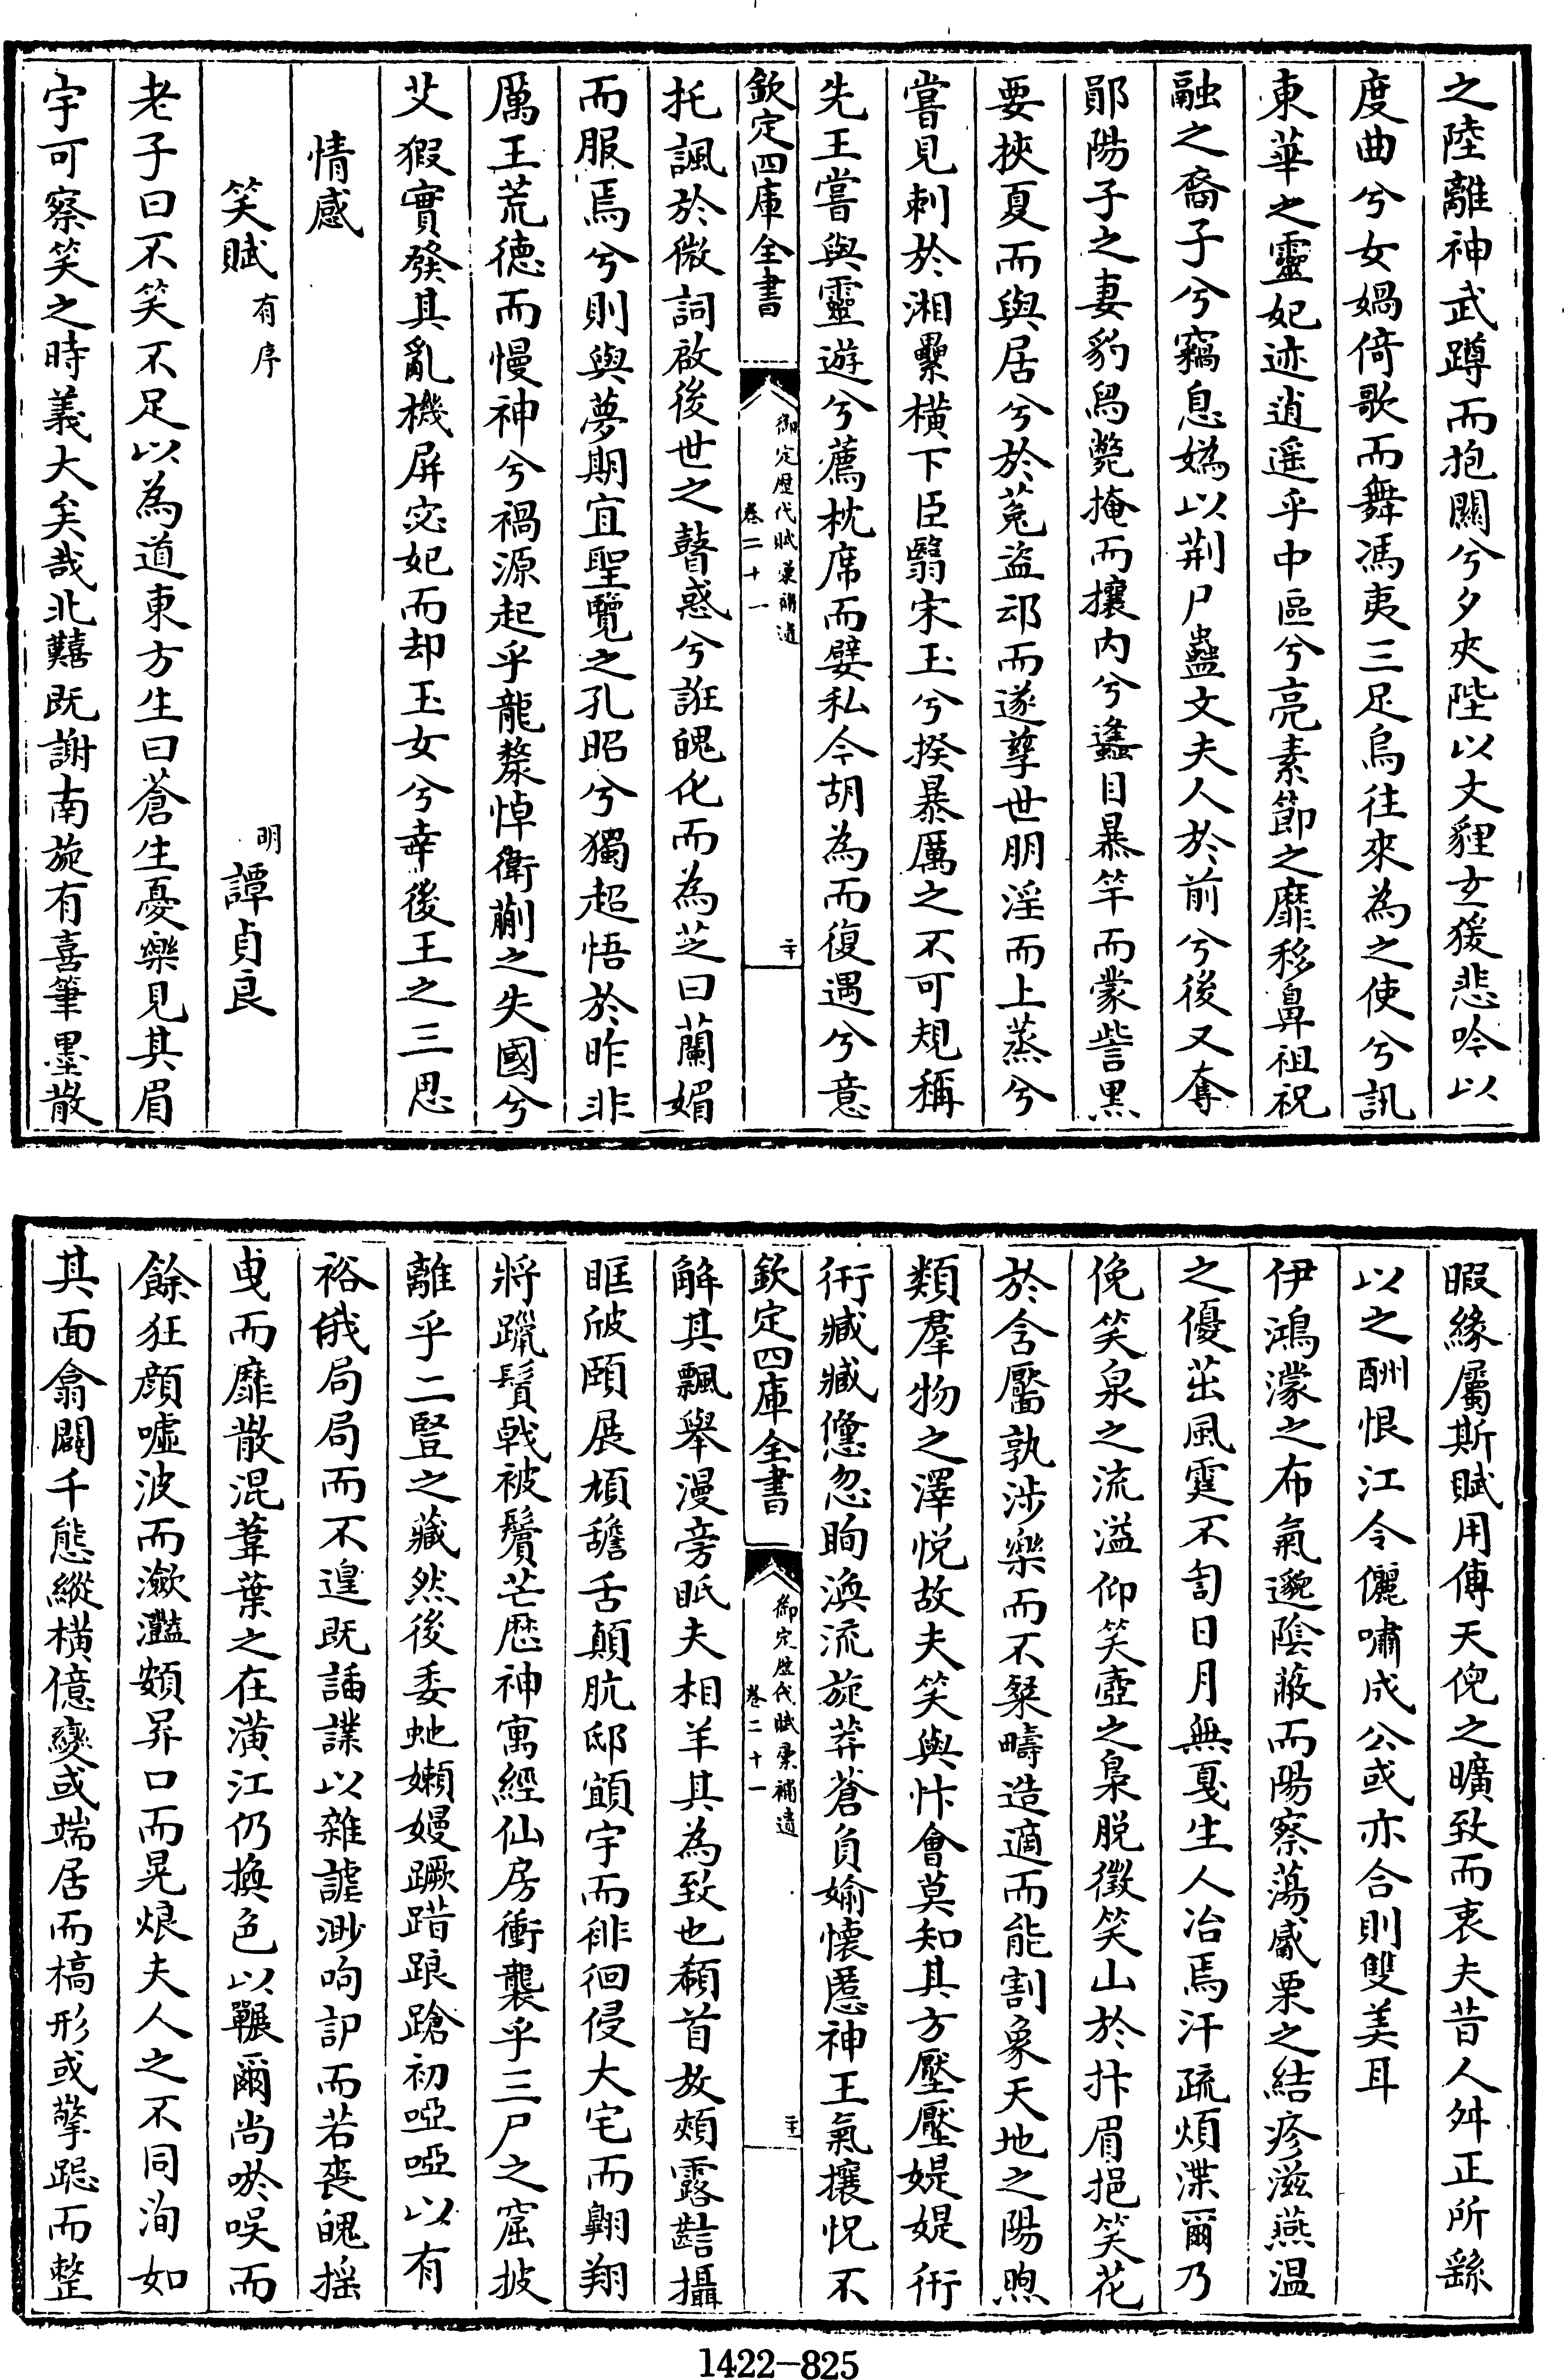 之陸離神武蹲而抱關兮夕夾陛以文貍玄猨悲吟以
度曲兮女媧倚歌而舞馮夷三足烏往來為之使兮訊
東華之靈妃迹逍遥乎中區兮亮素節之靡移鼻祖祝
融之裔子兮竊息媯以荆尸蠱文夫人於前兮後又奪
鄖陽子之妻豹舄斃掩而攘内兮蠭目暴竿而蒙訾黑
要挾夏而與居兮於菟盜䢵而遂孽世朋淫而上蒸兮
嘗見刺於湘纍横下臣翳宋玉兮揆暴厲之不可規稱
先王嘗與靈遊兮薦枕席而嬖私今胡為而復遇兮意
欽定四庫全書
御定歴代賦彙補遺
卷二十一
二十
托諷於微詞啟後世之瞽惑兮誑魄化而為芝曰蘭媚
而服焉兮則與夢期宜聖覽之孔昭兮獨超悟於昨非
厲王荒德而慢神兮禍源起乎龍漦悼衛蒯之失國兮
艾豭實發其亂機屏宓妃而却玉女兮幸後王之三思
情感
笑賦有序
明譚貞良
老子曰不笑不足以為道東方生曰蒼生憂樂見其眉
宇可察笑之時義大矣哉北囏既謝南旎有喜筆墨散
暇緣屬斯賦用傅天倪之曠致而衷夫昔人舛正所繇
以之酬恨江令儷嘯成公或亦合則雙美耳
伊鴻濛之布氣邈陰蔽而陽察蕩歊栗之結疹滋燕温
之優茁風霆不訇日月無戛生人冶焉汗疏煩渫爾乃
俛笑泉之流溢仰笑壺之梟脱徵笑山於抃眉挹笑花
於含靨孰涉樂而不粲疇造適而能割象天地之陽煦
類羣物之澤悦故夫笑與忭會莫知其方壓壓媞媞衎
衎臧臧儻忽眴渙流旎莽蒼負媮懐慝神王氣攘怳不
欽定四庫全書
御定歴代賦彙補遺
卷二十一
二十一
解其飄舉漫旁眂夫相羊其為致也頯首放頰露齰攝
眶㿱頤展頄䑙舌顛肮邸䪼宇而徘徊侵大宅而翺翔
將躐鬢戟被鬢芒歴神寓經仙房衝襲乎三尸之窟披
離乎二豎之藏然後委虵嬾嫚蹶踖踉蹌初啞啞以有
裕俄局局而不遑既諙諜以雜謔渺呴訆而若喪魄揺
曳而靡散混葦葉之在潢江仍換色以囅爾尚唹唉而
餘狂顔嘘波而瀲灎頞昇口而晃烺夫人之不同洵如
其面翕闢千態縱横億變或端居而槁形或擎跽而整
1422-825